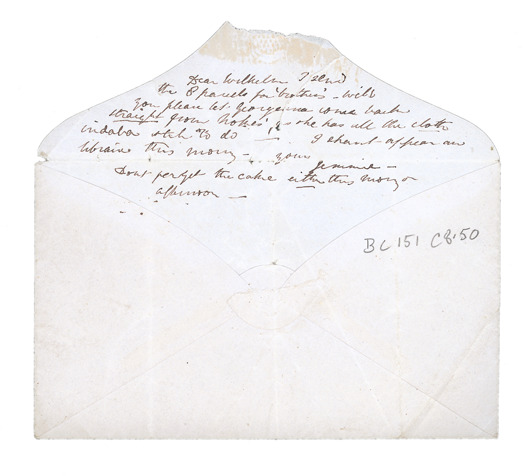 Dear Wilhelm I send
the 8 parcels for brothers - will
you please let Georgeanna come back
straight from Nokes', as she has all the cloth
indaba still to do — I shant appear in
libraire this morng - your
Jemmie -
Dont forget the cake either this morng or
afternoon —
BC 151 C8.50